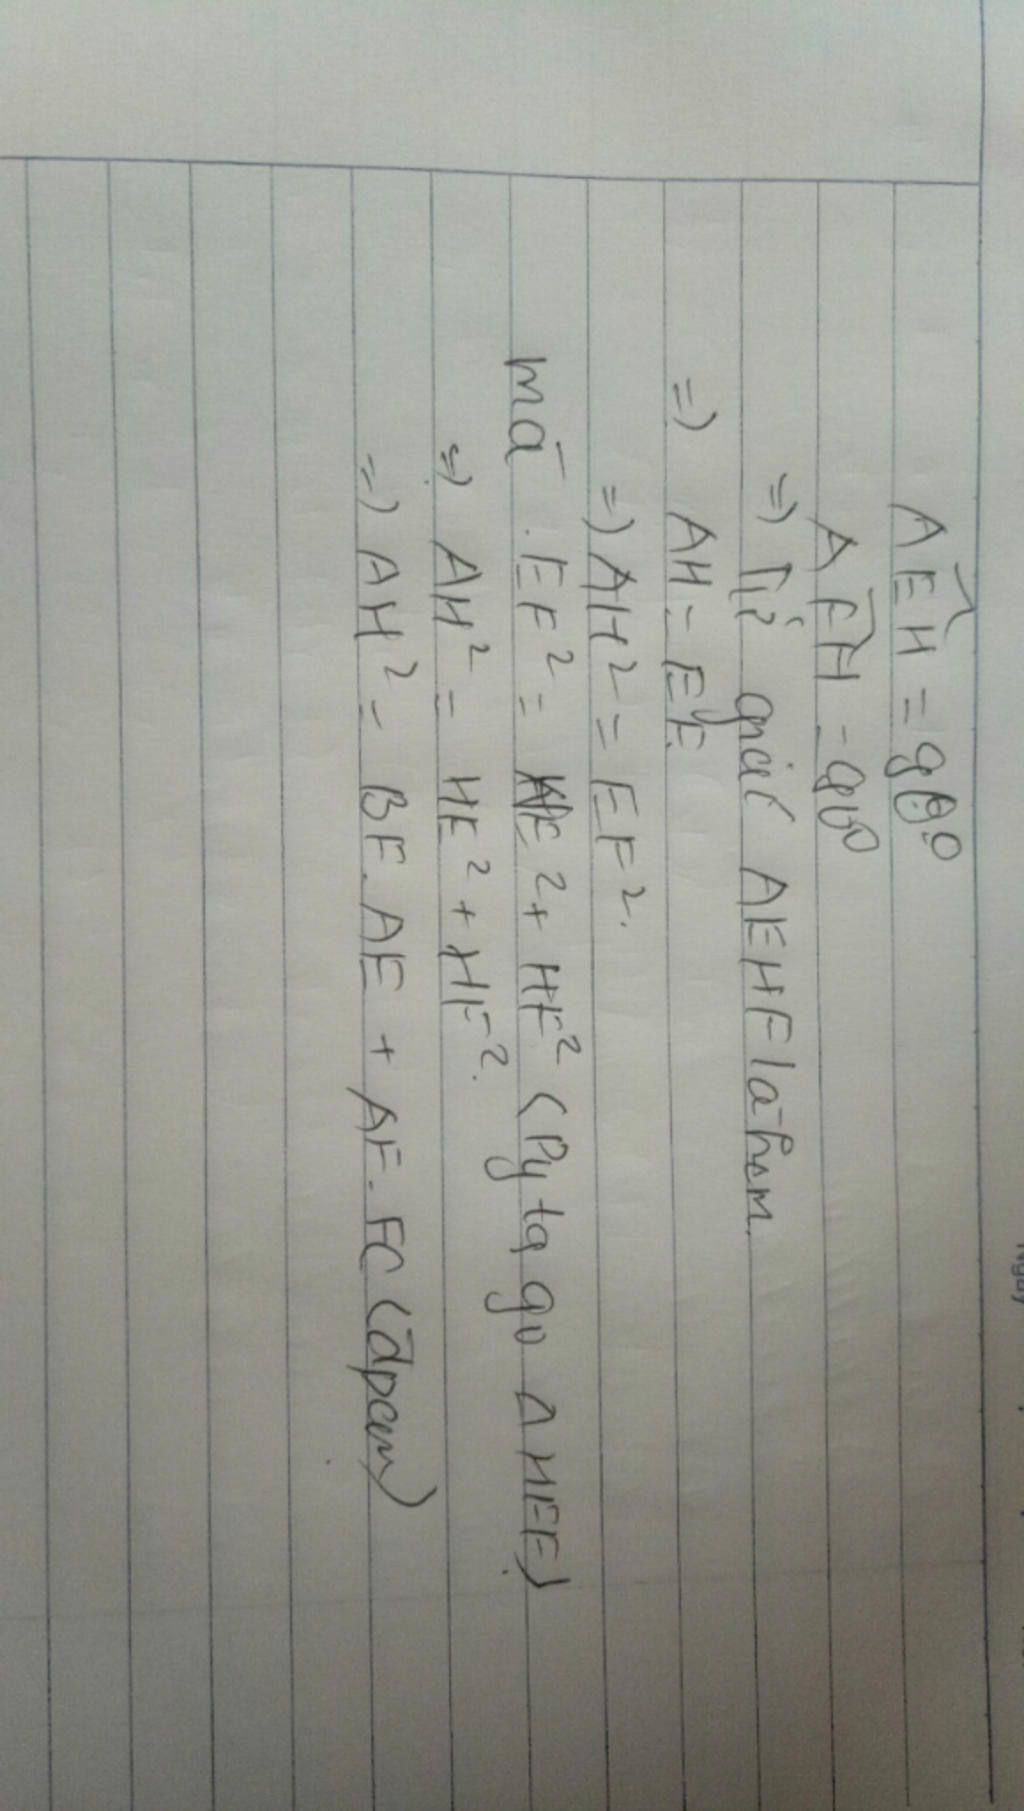 AEH = 90⁰
AFH = 90⁰
=) Tứ giác AEHF là hcn.
=) AH = EF
=) AH² = EF².
mà. EF² = HE² + HF² (Pytago Δ HEF)
=) AH² = HE² + HF².
=) AH² = BE.AE + AF.FC (đpcm)